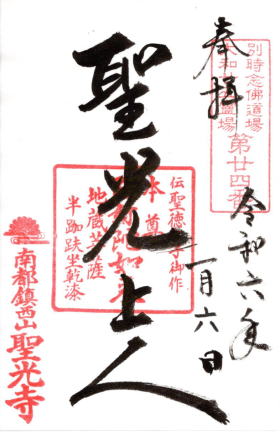 奉拝
別時念佛道場
大和北部霊場
第廿四番
令和六年
一月六日
聖光上人
伝聖徳太子御作
本尊
如来
地蔵菩薩
半跏趺坐乾漆
南都鎮西山
聖光寺